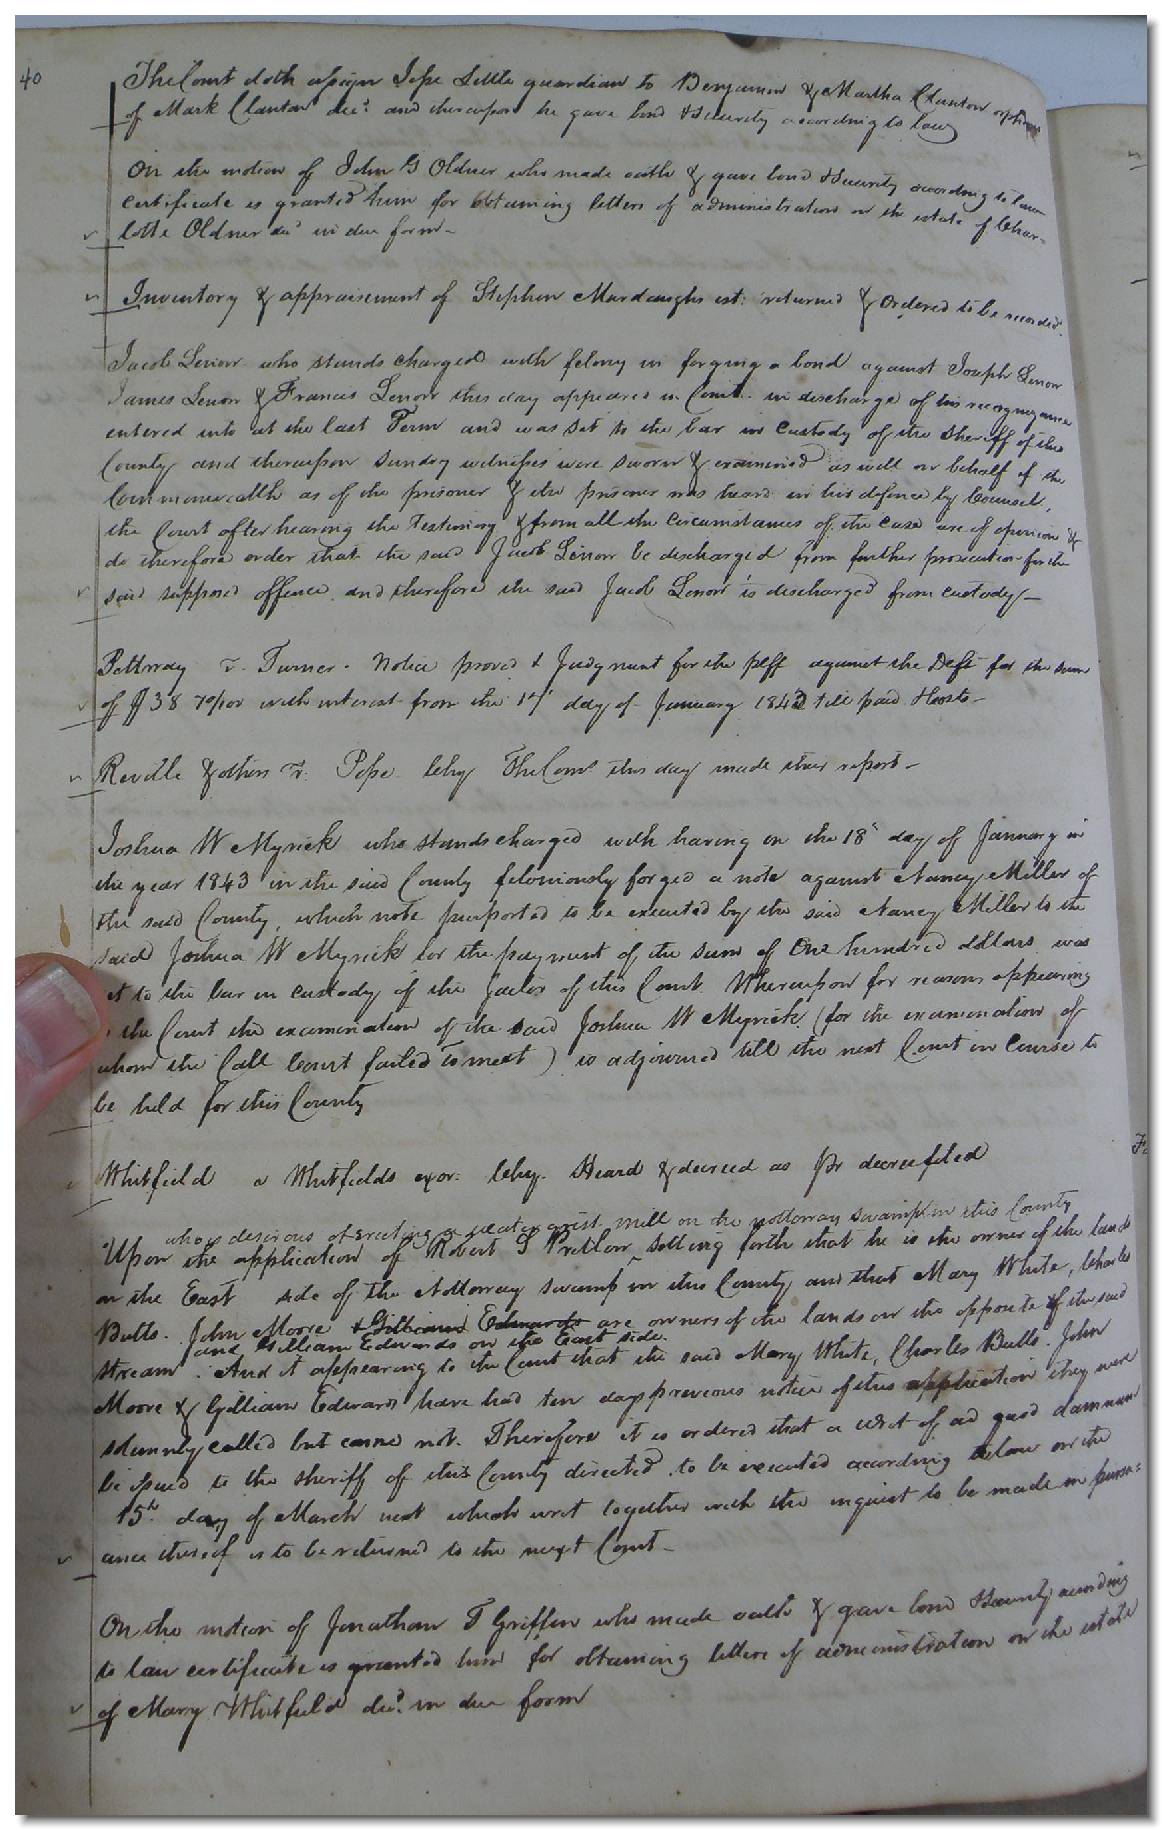 40
The Court doth assign Jesse Little guardian to Benjamin & Martha Clanton orphans
of Mark Clanton decd. and thereupon he gave bond & security according to law
On the motion of John G Oldner who made oath & gave bond & security according to law
certificate is granted him for obtaining letters of administration on the estate of Char-
lotte Oldner decd in due form -
Inventory & appraisement of Stephen Murdaughs est: returned & ordered to be recorded.
Jacob Lenow who stands charged with felony in forging a bond against Joseph Lenow
James Lenow & Francis Lenow this day appeared in Court in discharge of his recognizance
entered into at the last Term and was set to the bar in custody of the Sheriff of this
County and thereupon sundry witnesses were sworn & examined as well on behalf of the
Commonwealth as of the prisoner & the prisoner was heard in his defence by Counsel,
the Court after hearing the Testimony & from all the circumstances of the case are of opinion &
do therefore order that the said Jacob Lenow be discharged from further prosecution for the
said supposed offence and therefore the said Jacob Lenow is discharged from custody -
Pettway v. Turner. Notice proved & Judgment for the plff against the Deft for the sum
of $38 70/100 with interest from the 1st day of January 1842 till paid & costs -
Reville & others v. Pope Chy The Comr this day made their report -
Joshua W Myrick who stands charged with having on the 18th day of January in
the year 1843 in the said County feloniously forged a note against Nancy Miller of
the said County, which note purported to be executed by the said Nancy Miller to the
said Joshua W Myrick for the payment of the sum of One hundred dollars was
et to the bar in custody of the Jailor of this Court. Whereupon for reasons appearing
the Court the examination of the said Joshua W Myrick (for the examination of
whom the Call Court failed to meet) is adjourned till the next Court in Course to
be held for this County
Whitfield v Whitfields exor. Chy. Heard & decreed as pr decree filed
who is desirous of erecting a water grist mill on the nottoway swamp in this County
Upon the application of Robert S Pretlow ^ setting forth that he is the owner of the lands
on the East side of the Nottoway swamp in this County and that Mary White, Charles
Butts. John Moore & Gilliam Edwards are owners of the lands on the opposite of the said
and Gilliam Edwards on the East side.
stream. And it appearing to the Court that the said Mary White, Charles Butts. John
Moore & Gilliam Edwards have had ten days previous notice of this application they were
solemnly called but came not. Therefore it is ordered that a writ of ad quod damnum
be issued to the sheriff of this County directed to be executed according to law on the
15th day of March next which writ together with the inquest to be made in pursu=
ance thereof is to be returned to the next Court -
On the motion of Jonathan T Griffin who made oath & gave bond & security according
to law certificate is granted him for obtaining letters of administration on the estate
of Mary Whitfield decd. in due form